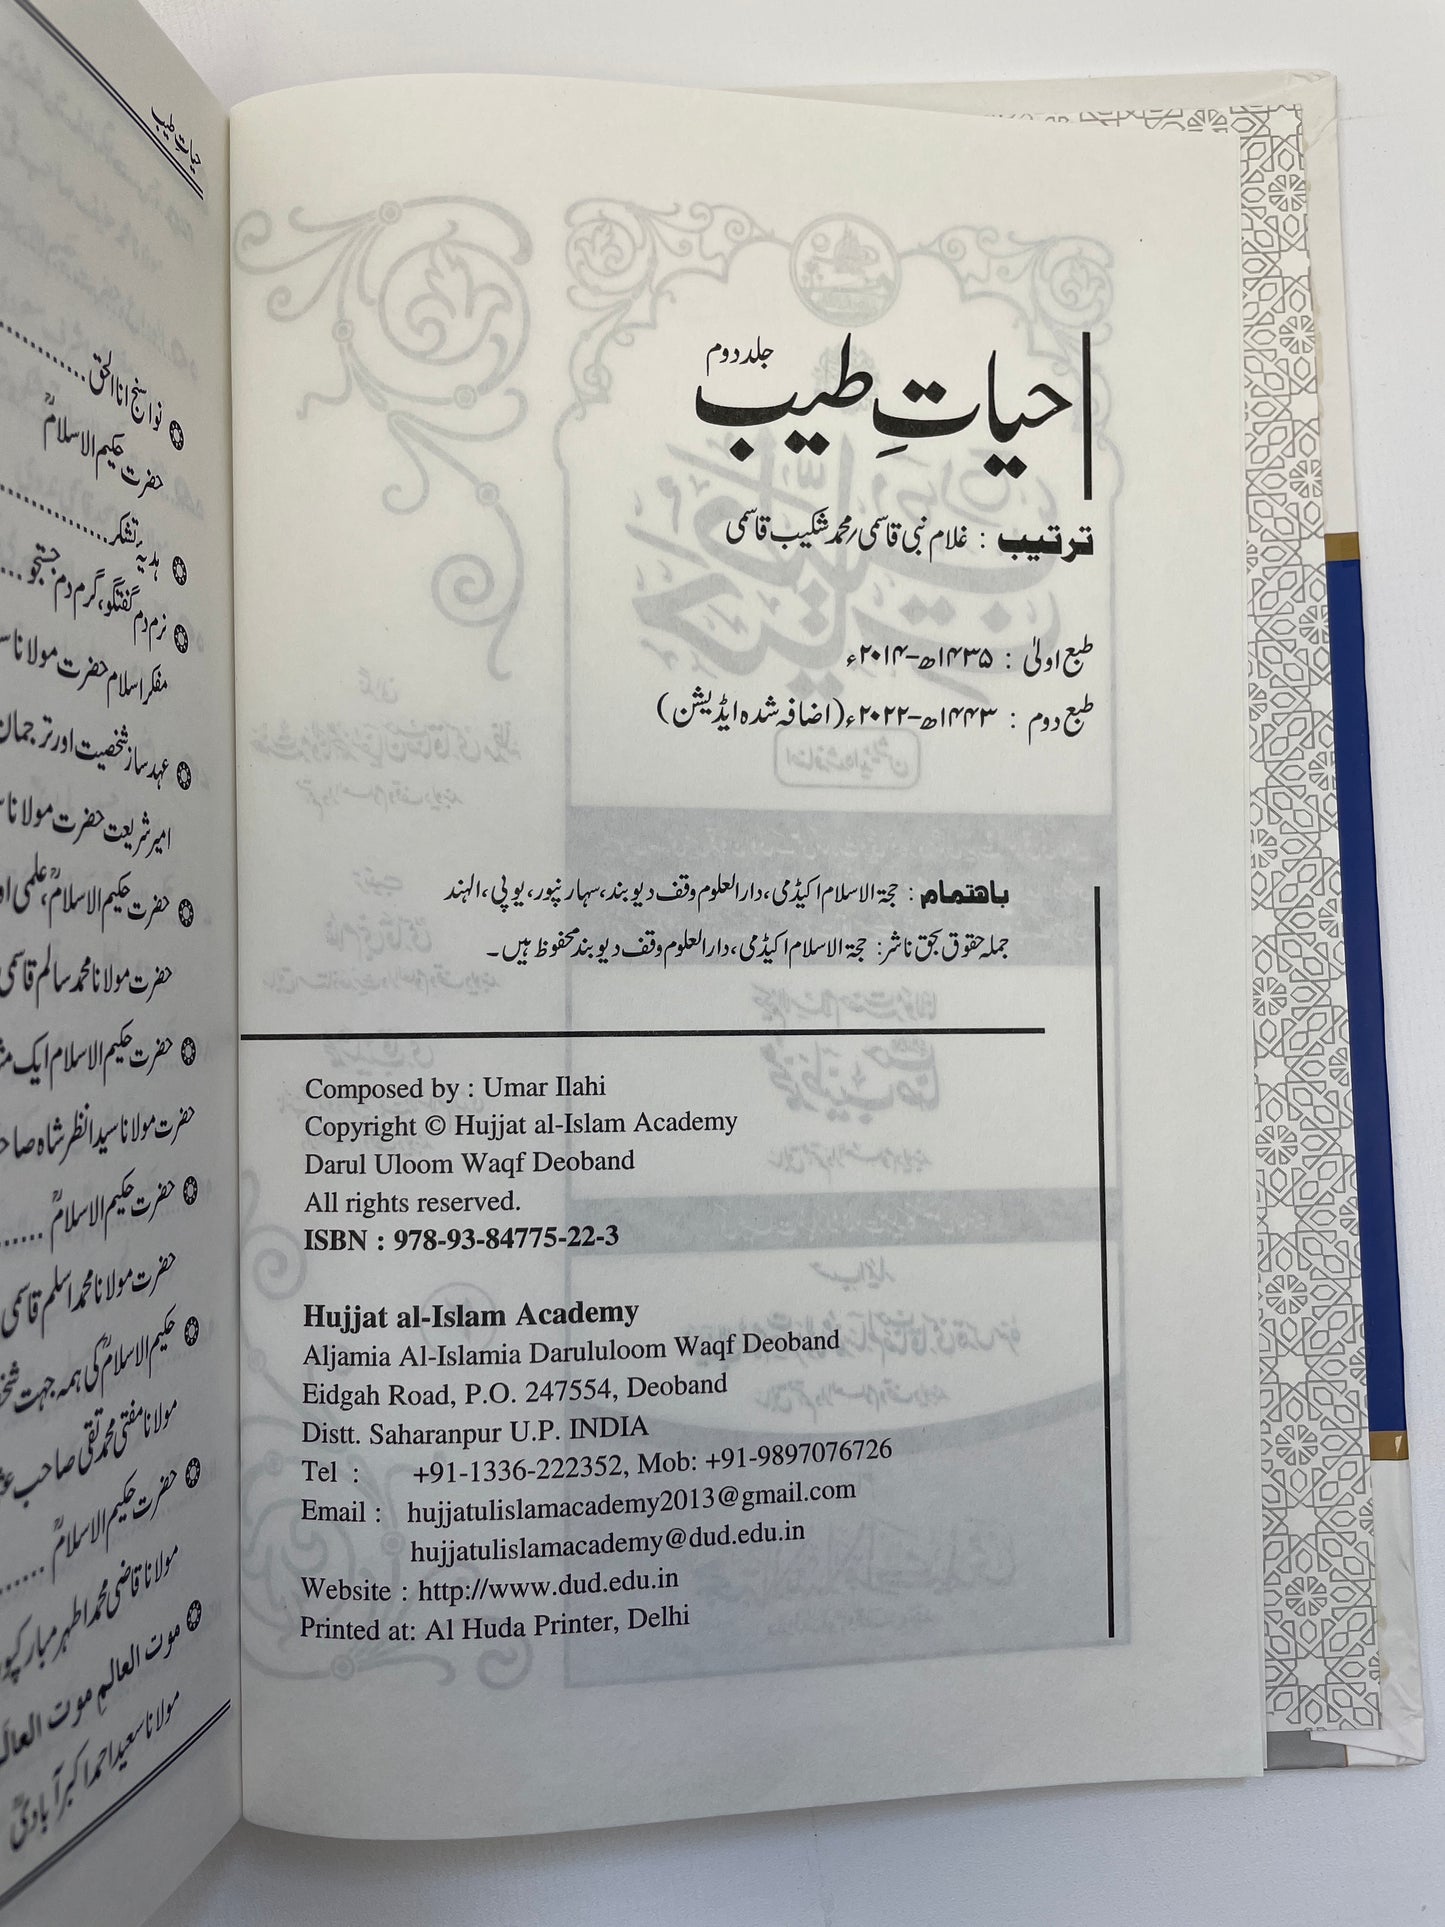 جلد دوم
حیاتِ طیب
ترتیب : غلام نبی قاسمی؍محمد شکیب قاسمی
طبع اولیٰ : ۱۴۳۵ھ-۲۰۱۴ء
طبع دوم : ۱۴۴۳ھ-۲۰۲۲ء (اضافہ شدہ ایڈیشن)
باہتمام : حجۃ الاسلام اکیڈمی، دارالعلوم وقف دیوبند، سہارنپور، یوپی، الہند
جملہ حقوق بحق ناشر: حجۃ الاسلام اکیڈمی، دارالعلوم وقف دیوبند محفوظ ہیں۔
Composed by : Umar Ilahi
Copyright © Hujjat al-Islam Academy
Darul Uloom Waqf Deoband
All rights reserved.
ISBN : 978-93-84775-22-3
Hujjat al-Islam Academy
Aljamia Al-Islamia Darululoom Waqf Deoband
Eidgah Road, P.O. 247554, Deoband
Distt. Saharanpur U.P. INDIA
Tel : +91-1336-222352, Mob: +91-9897076726
Email : hujjatulislamacademy2013@gmail.com
hujjatulislamacademy@dud.edu.in
Website : http://www.dud.edu.in
Printed at: Al Huda Printer, Delhi
حیاتِ طیب
نوا سنج انا الحق ......
حضرت حکیم الاسلامؒ
ہدیۂ تشکر ......
نرم دم گفتگو، گرم دم جستجو ....
مفکر اسلام حضرت مولانا
عہد ساز شخصیت اور ترجمان
امیر شریعت حضرت مولانا
حضرت حکیم الاسلامؒ، علمی
حضرت مولانا محمد سالم قاسمی
حضرت حکیم الاسلام ایک
حضرت مولانا سید انظر شاہ
حضرت حکیم الاسلامؒ ......
حضرت مولانا محمد اسلم قاسمی
حکیم الاسلامؒ کی ہمہ جہت
مولانا مفتی محمد تقی صاحب
حضرت حکیم الاسلامؒ ......
مولانا قاضی محمد اطہر
موت العالمِ موت
مولانا سعید احمد اکبرآبادیؒ